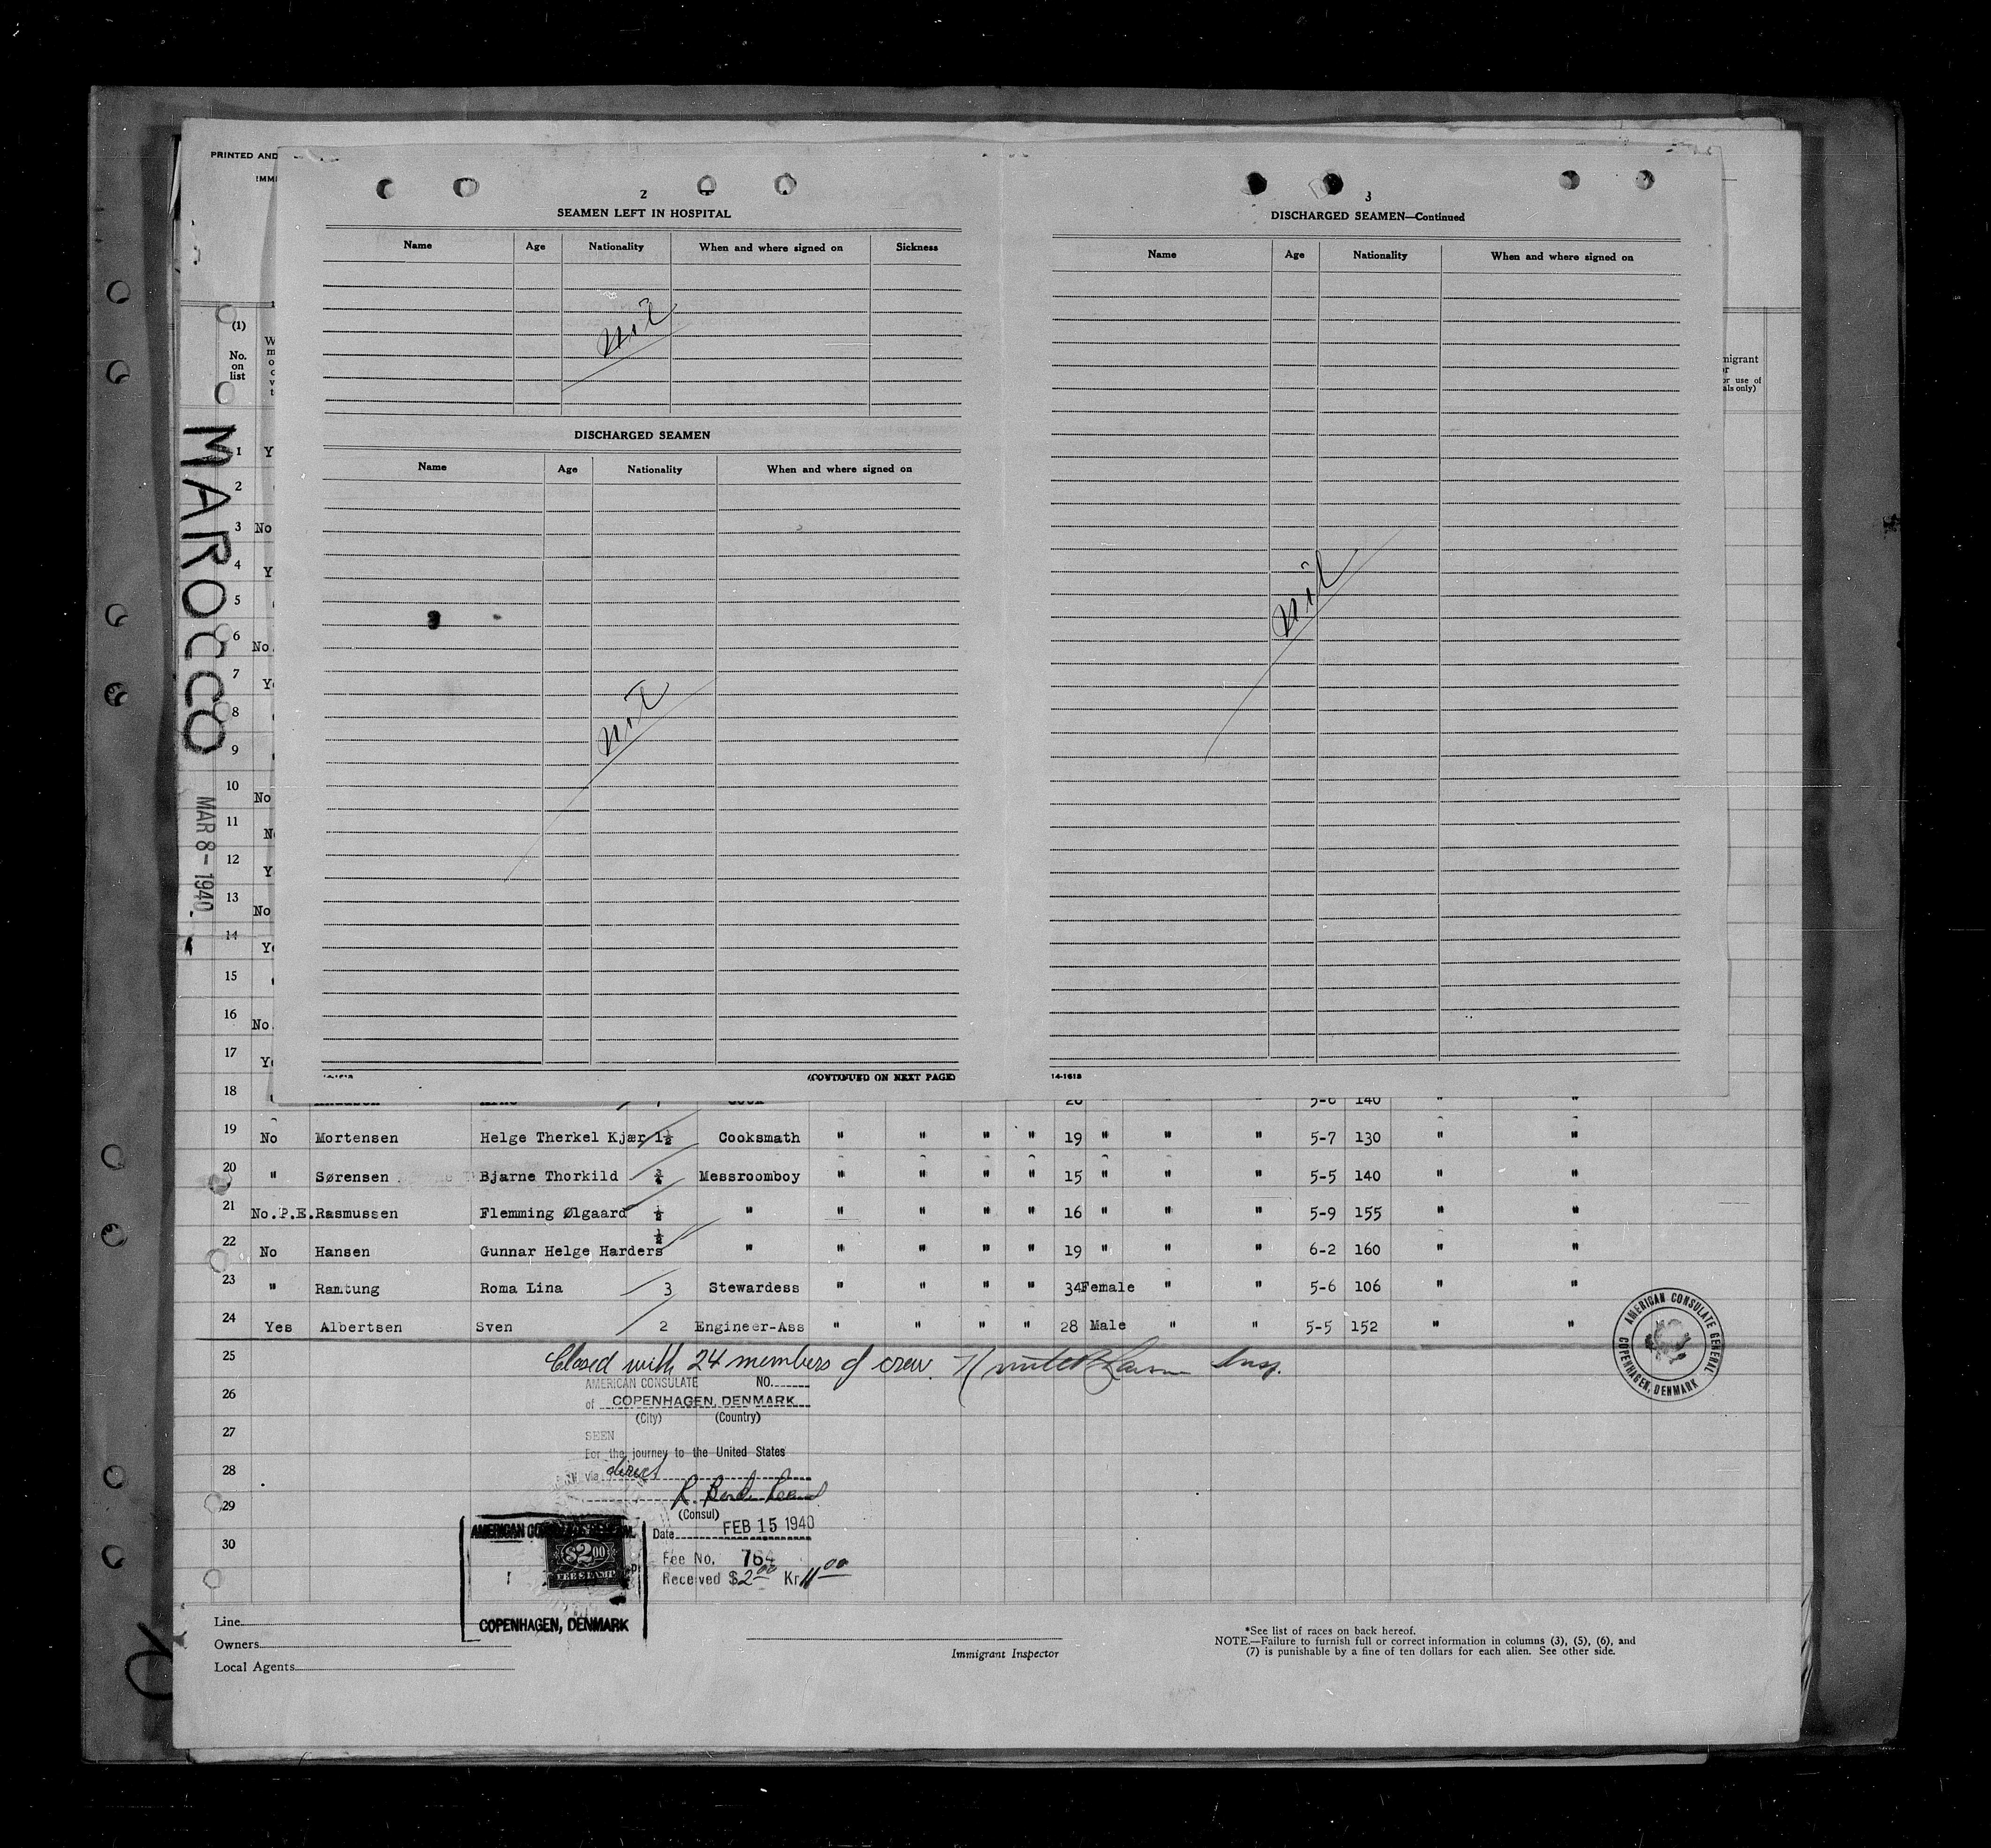 PRINTED AND
IMMI
2
SEAMEN LEFT IN HOSPITAL
Name Age Nationality When and where signed on Sickness
nil
DISCHARGED SEAMEN
Name Age Nationality When and where signed on
nil
(CONTINUED ON NEXT PAGE)
3
DISCHARGED SEAMEN—Continued
Name Age Nationality When and where signed on
nil
14-1618
(1)
No.
on
list
migrant
or use of
als only)
MAROCCO
MAR 8 - 1940
1 Y
2
3 No
4 Y
5
6 No.
7 Ye
8
9
10 No
11 No
12 Y
13 No
14 Ye
15
16 No.
17 Ye
18 Cook 20 " " " 5-6 140 " "
19 No Mortensen Helge Therkel Kjær 1½ Cooksmath " " " " 19 " " " 5-7 130 " "
20 " Sørensen Bjarne Thorkild Messroomboy " " " " 15 " " " 5-5 140 " "
21 No.P.E. Rasmussen Flemming Ølgaard ½ " " " " " 16 " " " 5-9 155 " "
22 No Hansen Gunnar Helge Harders ½ " " " " " 19 " " " 6-2 160 " "
23 " Ramtung Roma Lina 3 Stewardess " " " " 34 Female " " 5-6 106 " "
24 Yes Albertsen Sven 2 Engineer-Ass " " " " 28 Male " " 5-5 152 " "
25 Closed with 24 members of crew. Insp.
AMERICAN CONSULATE GENERAL COPENHAGEN, DENMARK
AMERICAN CONSULATE NO.
26 of COPENHAGEN, DENMARK
(City) (Country)
27 SEEN
For the journey to the United States
28 via direct
29
(Consul)
Date FEB 15 1940
30 Fee No. 764
Received $2.00 Kr 11.00
AMERICAN CONSULATE GENERAL
$2.00
FEE STAMP
COPENHAGEN, DENMARK
Line
Owners
Local Agents
Immigrant Inspector
*See list of races on back hereof.
NOTE.—Failure to furnish full or correct information in columns (3), (5), (6), and
(7) is punishable by a fine of ten dollars for each alien. See other side.